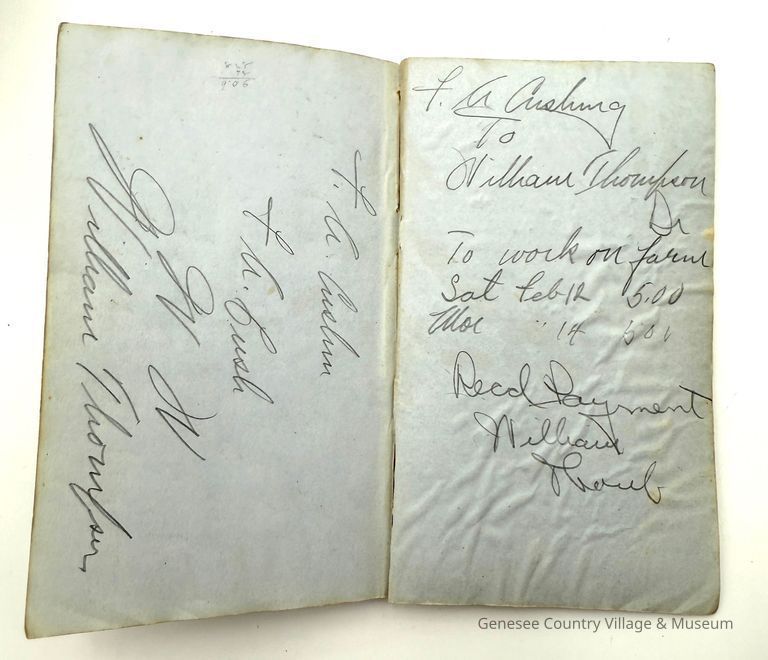 F. A. Cushin
F. A. Cush
W W W
William Thompson
F. A Cushing
To
William Thompson
Dr
To work on farm
Sat Feb 12 5.00
" 14
Recd Payment
William
Genesee Country Village & Museum